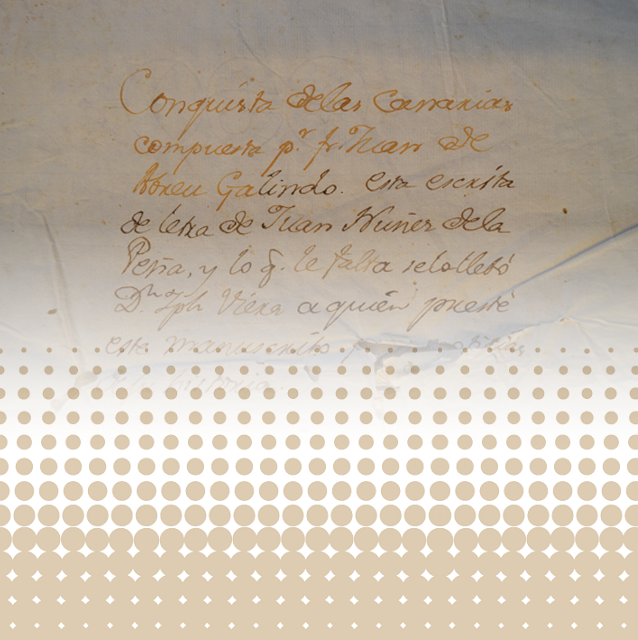 Conquista delas Canarias
compuesta p.r fr. Juan de
Abreu Galindo. esta escrita
de letra de Juan Nuñez dela
Peña, y lo q. le falta selollebó
D.n Jph Viera a quien presté
este manuscrito
historia.